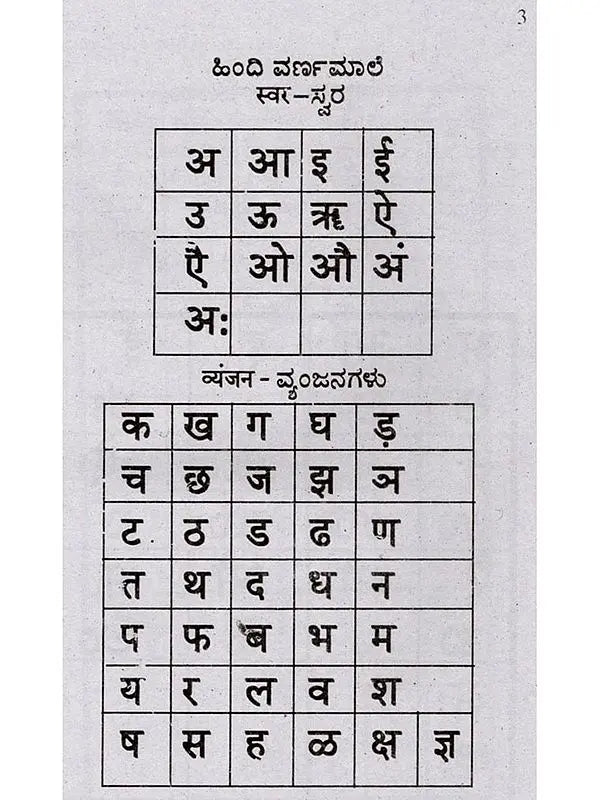 3
ಹಿಂದಿ ವರ್ಣಮಾಲೆ
स्वर – ಸ್ವರ
अ आ इ ई
उ ऊ ॠ ऐ
एै ओ औ अं
अः
व्यंजन - ವ್ಯಂಜನಗಳು
क ख ग घ ड़
च छ ज झ ञ
ट ठ ड ढ ण
त थ द ध न
प फ ब भ म
य र ल व श
ष स ह ळ क्ष ज्ञ